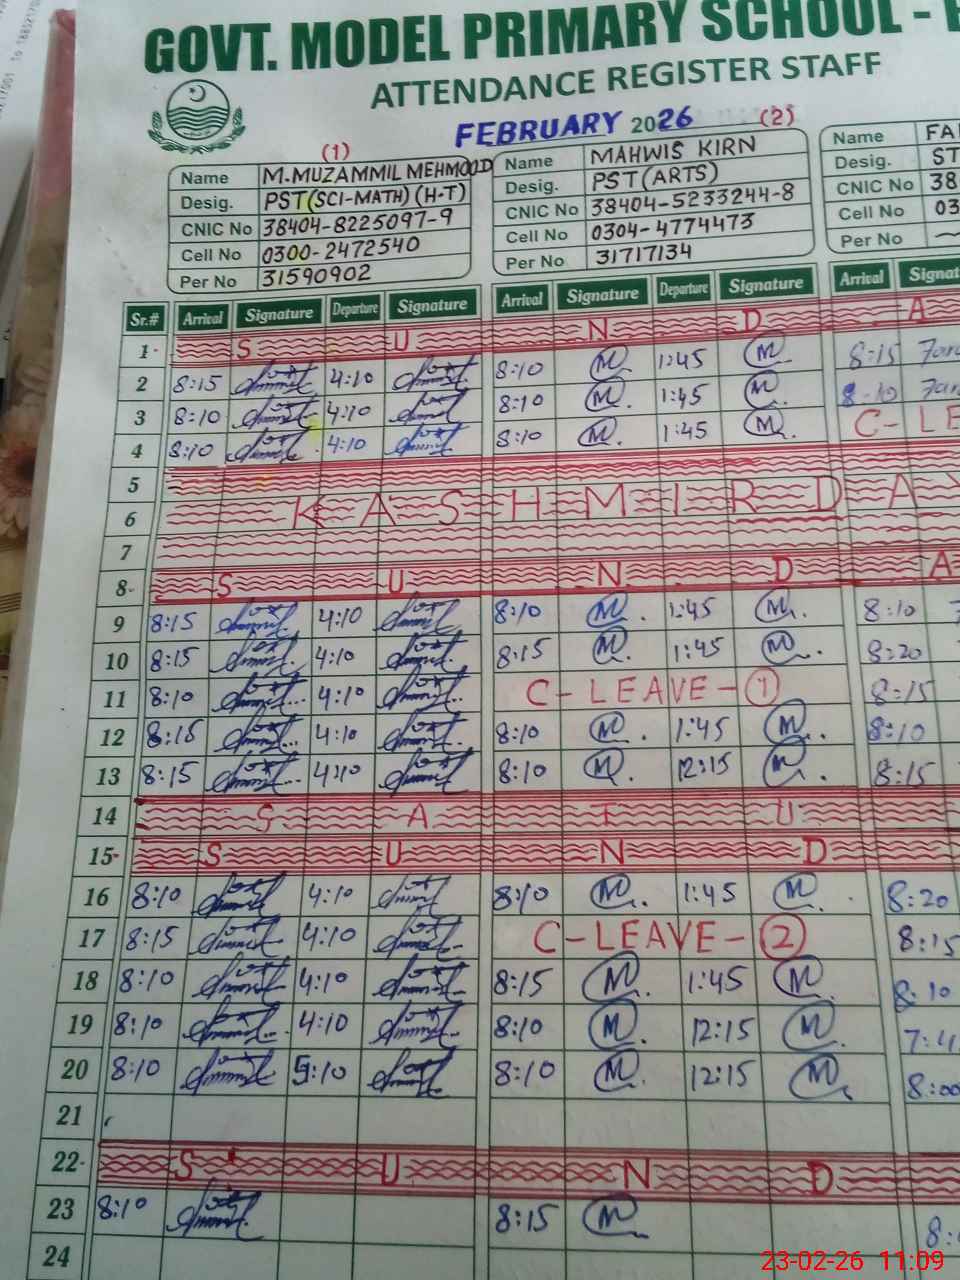 GOVT. MODEL PRIMARY SCHOOL -
ATTENDANCE REGISTER STAFF
FEBRUARY 2026
(1) (2)
Name M.MUZAMMIL MEHMOOD Name MAHWIS KIRN Name FA
Desig. PST(SCI-MATH)(H-T) Desig. PST(ARTS) Desig. ST
CNIC No 38404-8225097-9 CNIC No 38404-5233244-8 CNIC No 38
Cell No 0300-2472540 Cell No 0304-4774473 Cell No 03
Per No 31590902 Per No 31717134 Per No
Sr.# Arrival Signature Departure Signature Arrival Signature Departure Signature Arrival Signat
1 S U N D A
2 8:15 4:10 8:10 M 1:45 M 8:15
3 8:10 4:10 8:10 M 1:45 M 8:10
4 8:10 4:10 8:10 M 1:45 M C-LE
5
6 KASHMIR DAY
7
8 S U N D A
9 8:15 4:10 8:10 M 1:45 M 8:10
10 8:15 4:10 8:15 M 1:45 M 8:20
11 8:10 4:10 C-LEAVE-1 8:15
12 8:15 4:10 8:10 M 1:45 M 8:10
13 8:15 4:10 8:10 M 12:15 M 8:15
14 S A T U
15 S U N D
16 8:10 4:10 8:10 M 1:45 M 8:20
17 8:15 4:10 C-LEAVE-2 8:15
18 8:10 4:10 8:15 M 1:45 M 8:10
19 8:10 4:10 8:10 M 12:15 M 7:4
20 8:10 5:10 8:10 M 12:15 M 8:00
21
22 S U N D
23 8:10 8:15 M 8:
24
23-02-26 11:09